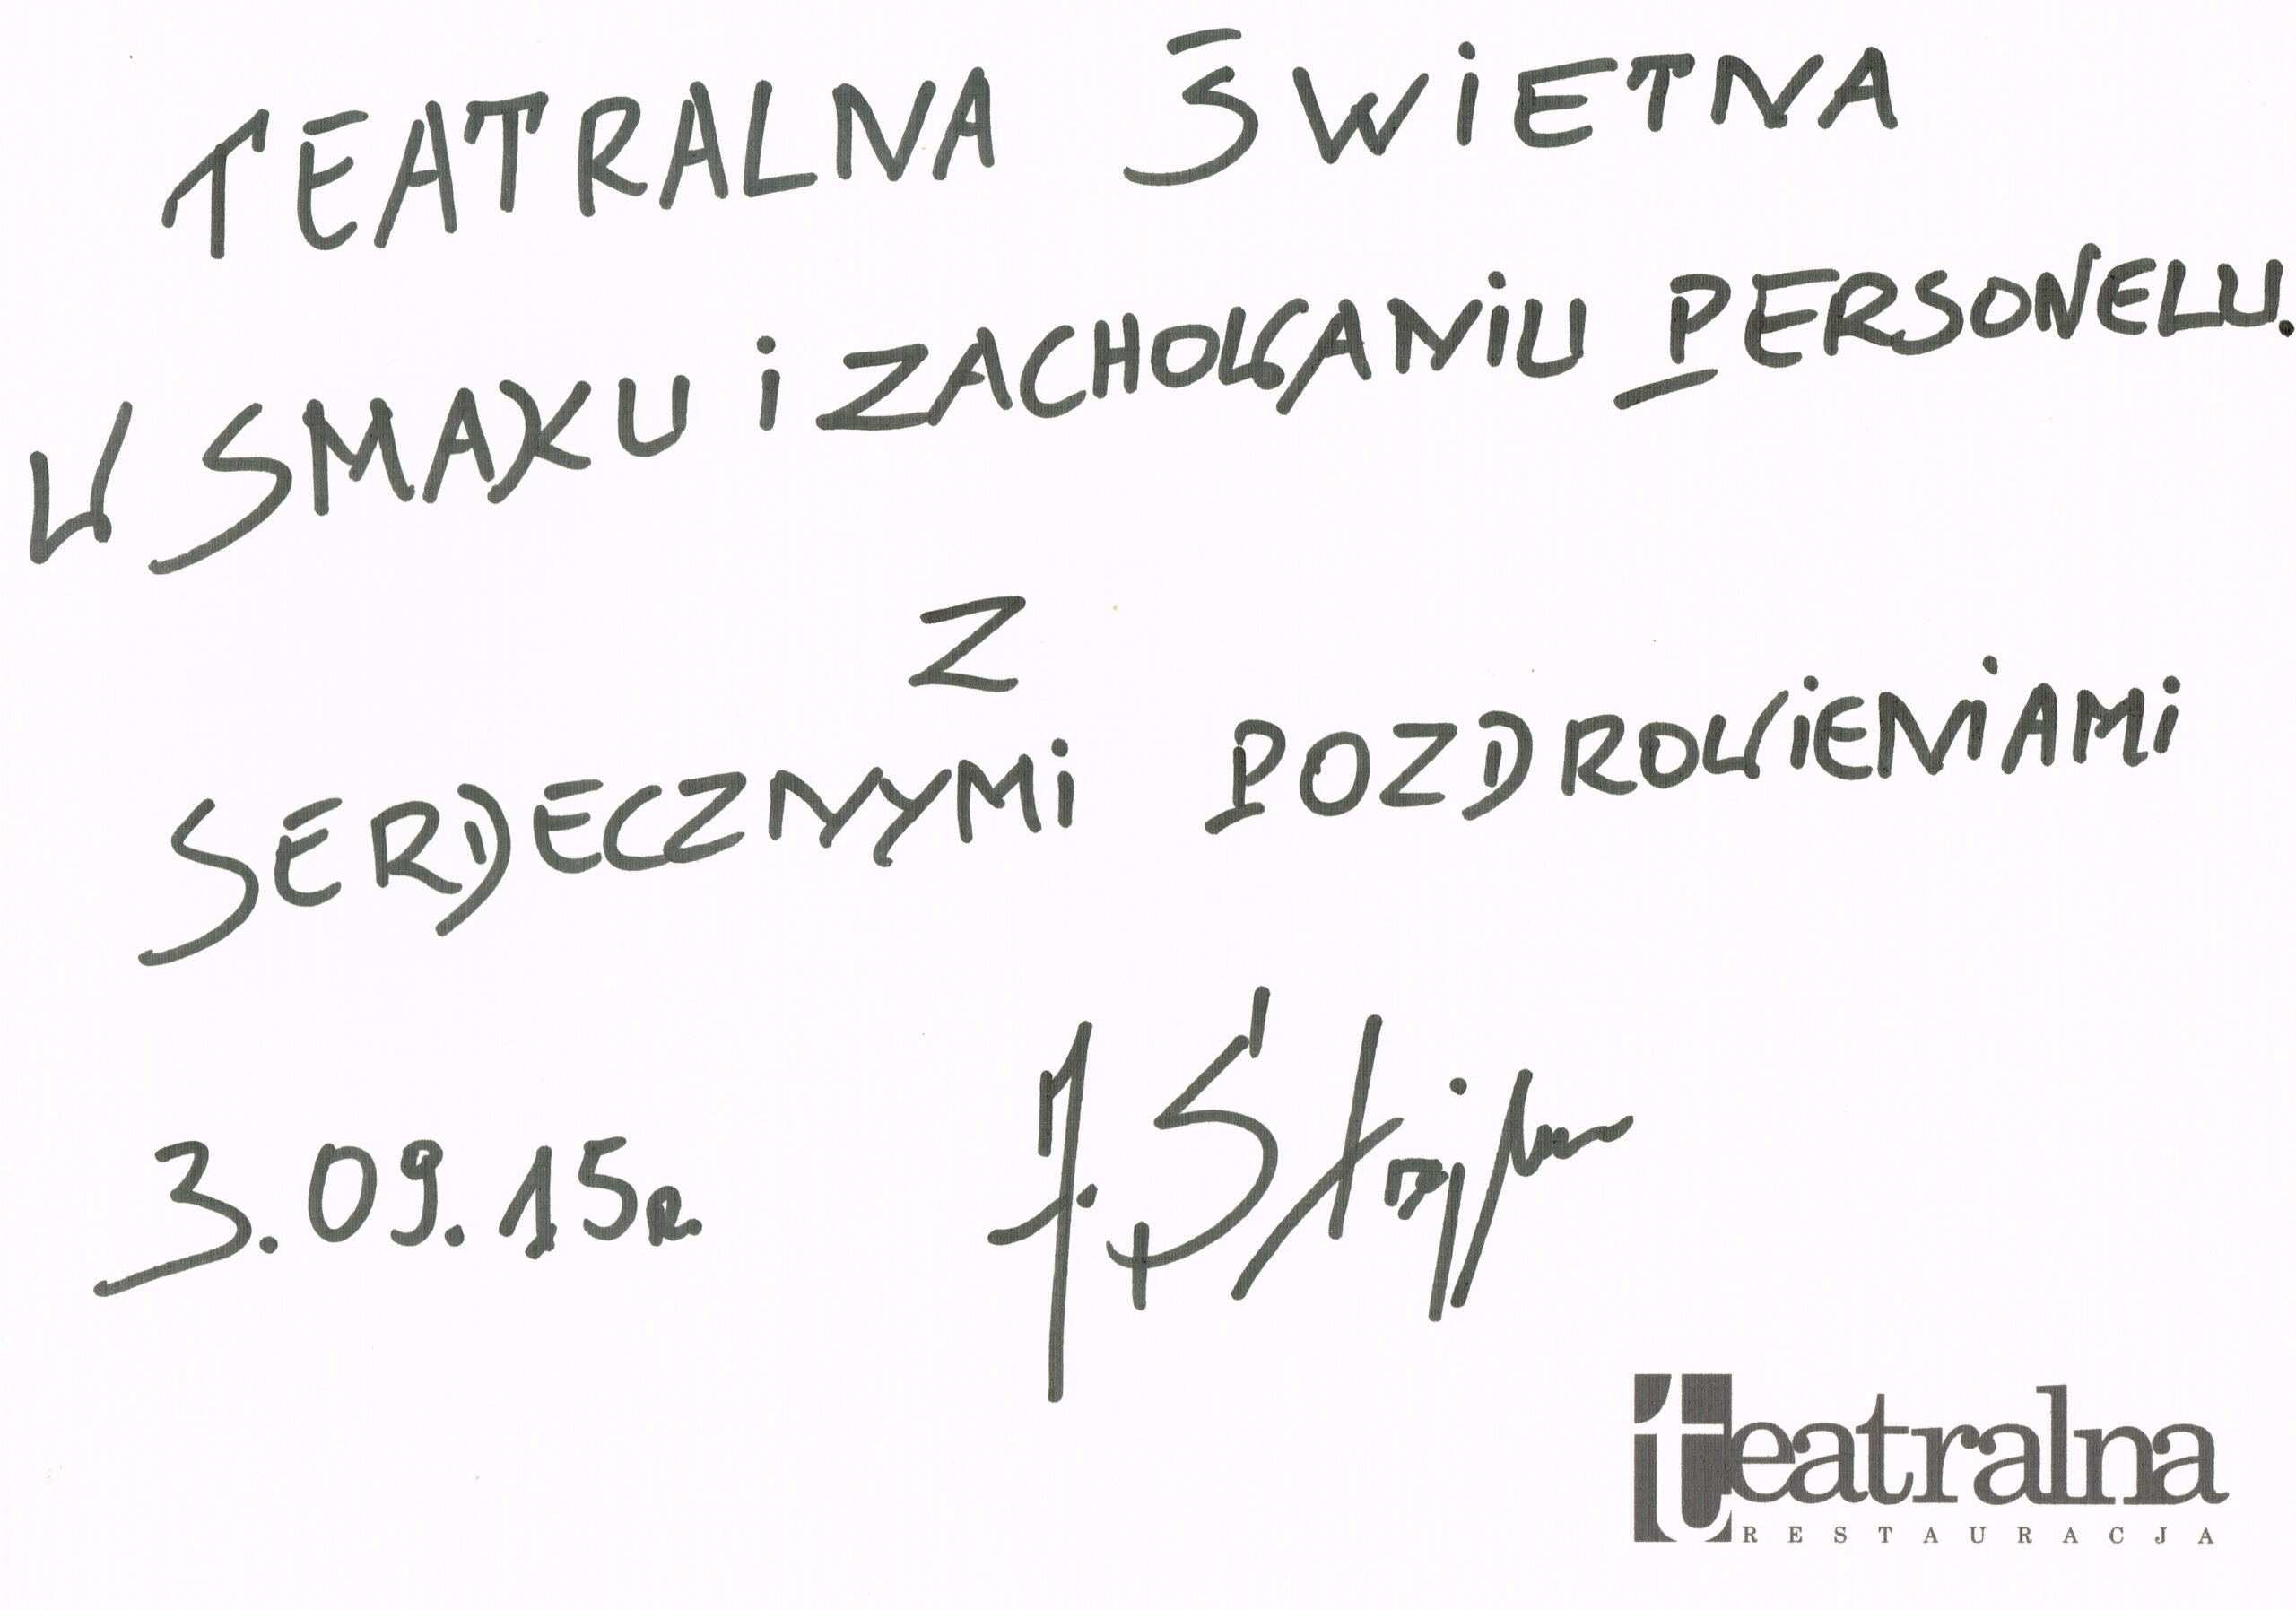 TEATRALNA ŚWIETNA
W SMAKU i ZACHOWANIU PERSONELU.
Z
SERDECZNYMI POZDROWIENIAMI
3.09.15R.
teatralna
RESTAURACJA